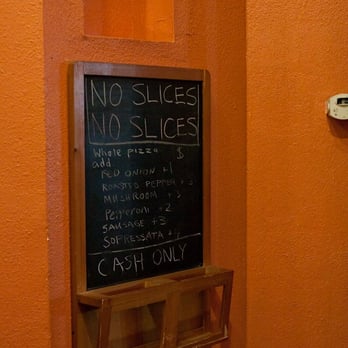 NO SLICES
NO SLICES
Whole pizza $
add
RED ONION +1
ROASTED PEPPER +
MUSHROOM +
Peperoni +2
SAUSAGE +3
SOPRESSATA +
CASH ONLY